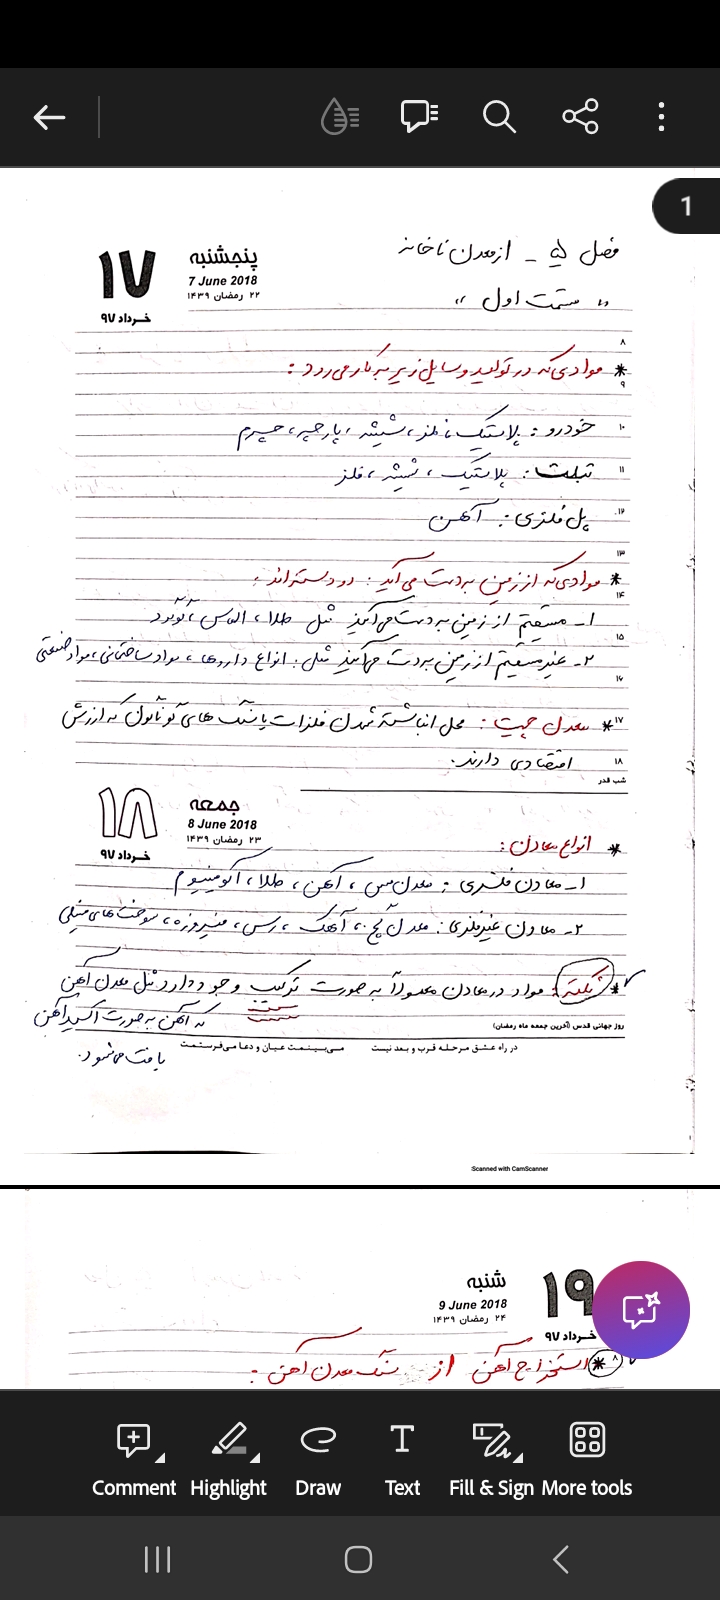 1
۱۷
پنجشنبه
7 June 2018
۲۲ رمضان ۱۴۳۹
خرداد ۹۷
فصل ۵ - از معدن تا خانه
" قسمت اول "
۸
* موادی که در تولید وسایل زیر به کار می رود :
۹
۱۰ خودرو : پلاستیک، فلز، شیشه، پارچه، چرم
۱۱ تبلت : پلاستیک، شیشه، فلز
۱۲ پل فلزی : آهن
۱۳
* موادی که از زمین به دست می آید : دو دسته اند :
۱۴
۱- مستقیم از زمین به دست می آیند مثل طلا، الماس،
۱۵
۲- غیر مستقیم از زمین به دست می آیند مثل : انواع داروها، مواد ساختمانی، مواد صنعتی
۱۶
۱۷ * معدن چیست : محل انباشته شدن فلزات یا سنگ های گوناگون که ارزش
۱۸ اقتصادی دارند.
شب قدر
۱۸
جمعه
8 June 2018
۲۳ رمضان ۱۴۳۹
خرداد ۹۷
* انواع معادن :
۱- معادن فلزی : معدن مس، آهن، طلا، آلومینیوم
۲- معادن غیرفلزی : معدن گچ، آهک، رس، فیروزه، سوخت های فسیلی
* نکته : مواد در معادن معمولاً به صورت ترکیب وجود دارد مثل معدن آهن
که آهن به صورت اکسید آهن
یافت می شود.
روز جهانی قدس (آخرین جمعه ماه رمضان)
در راه عشق مرحله قرب و بعد نیست می‌بینمت عیان و دعا می‌فرستمت
Scanned with CamScanner
شنبه
9 June 2018
۲۴ رمضان ۱۴۳۹
۱۹
خرداد ۹۷
۸ * استخراج آهن از سنگ معدن آهن :
Comment
Highlight
Draw
Text
Fill & Sign
More tools